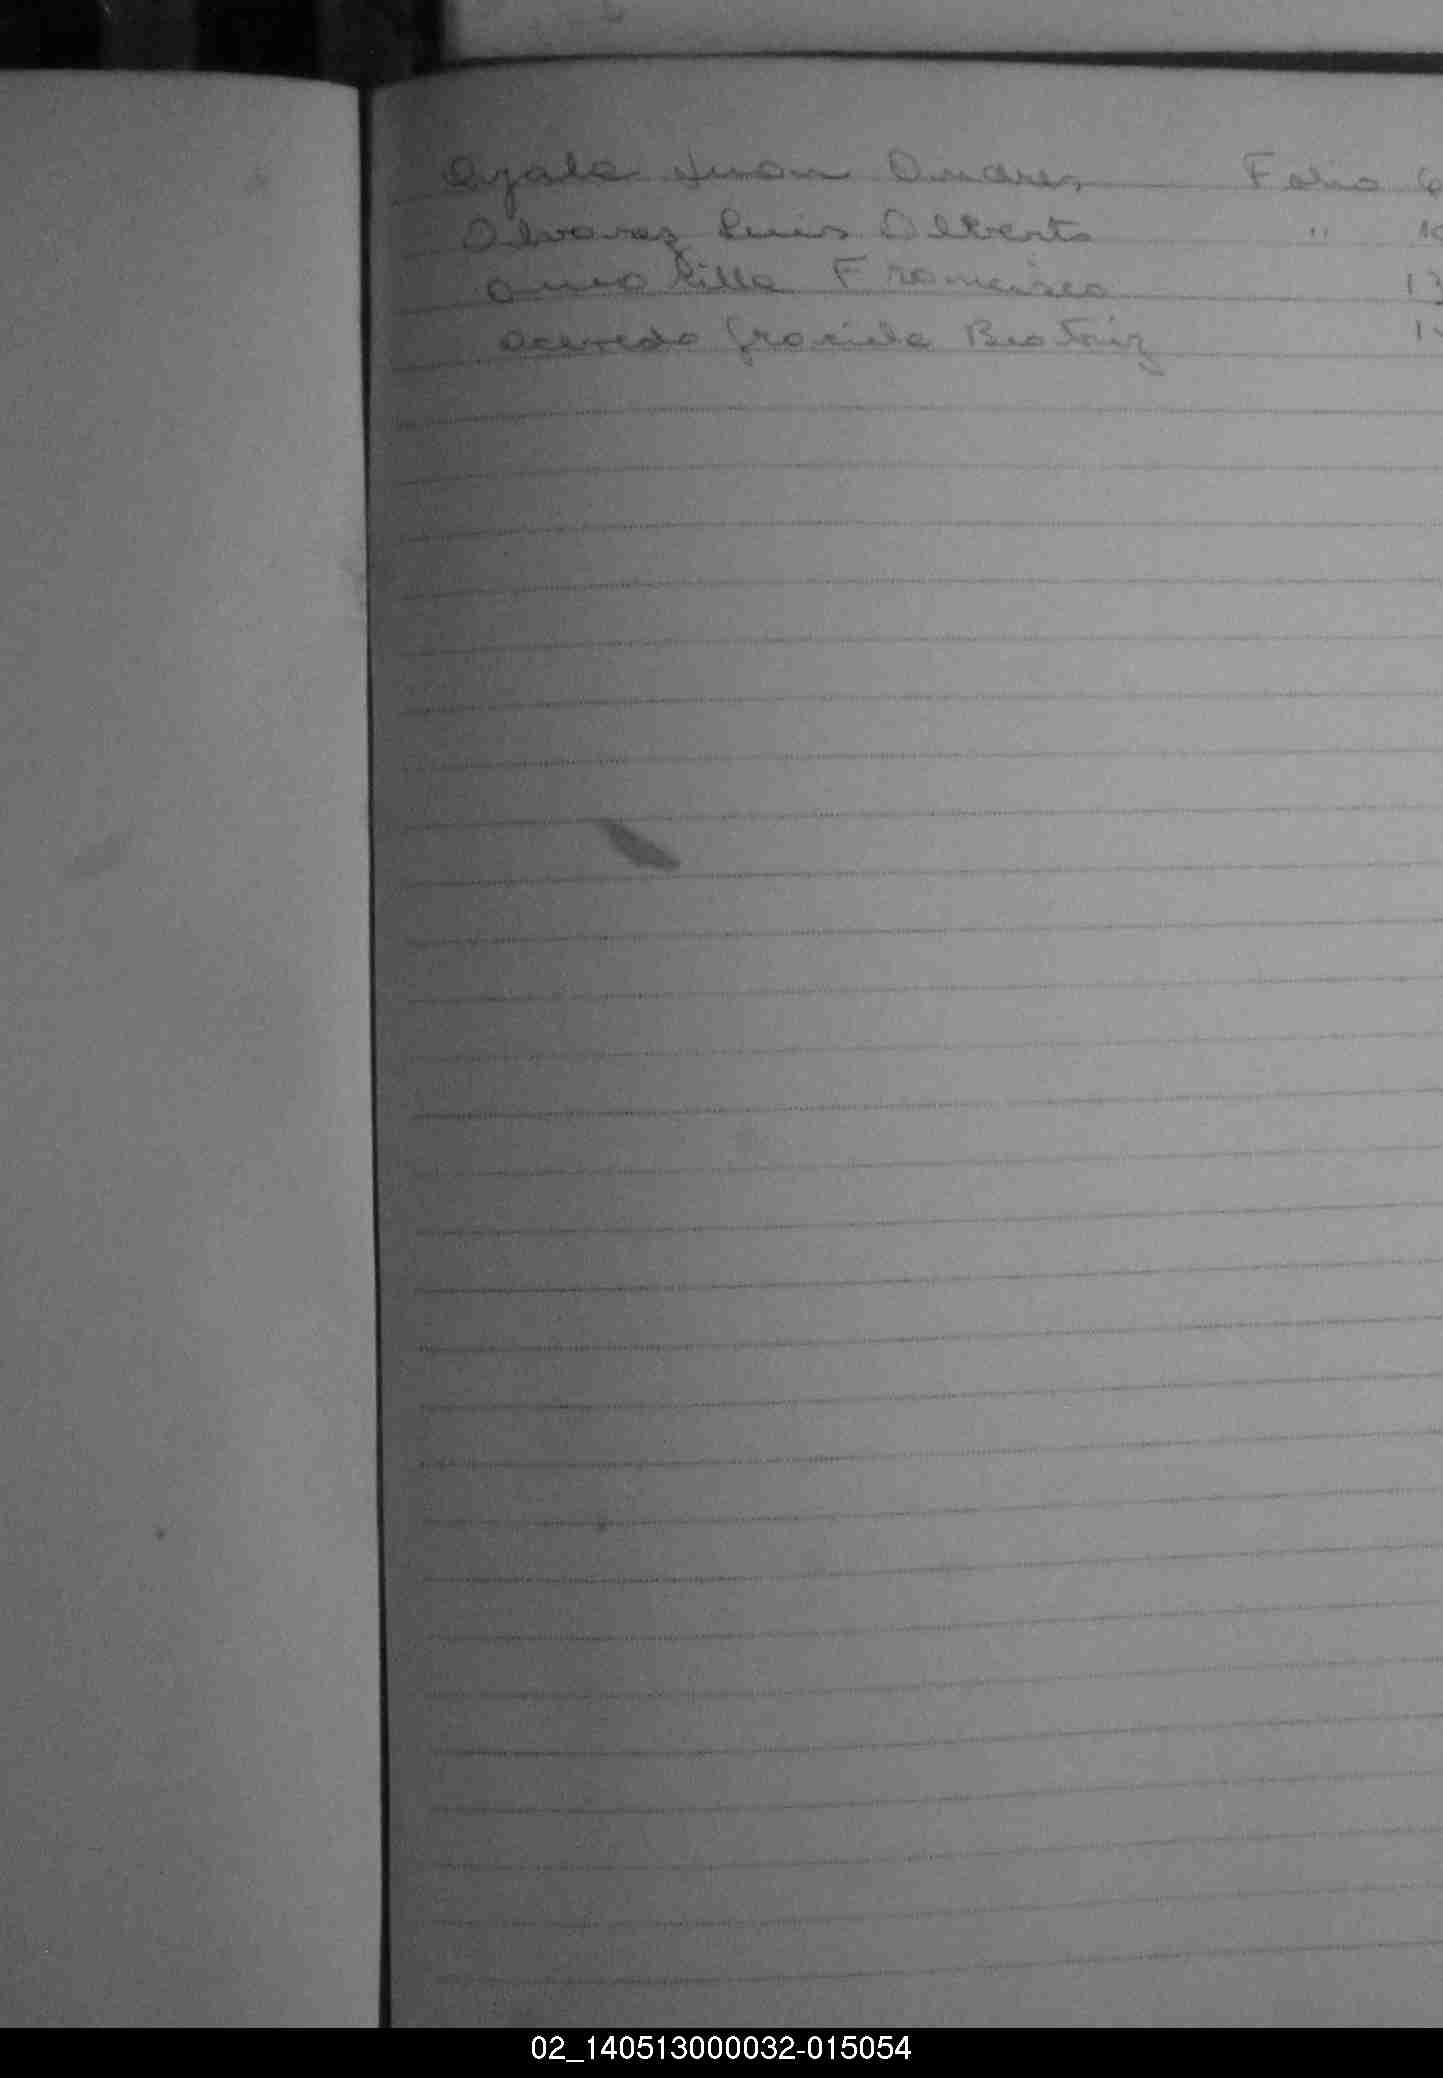 Ayala Juan Andres Folio 6
Alvarez Luis Alberto "
Francisco 13
Acevedo Graciela Beatriz
02_140513000032-015054